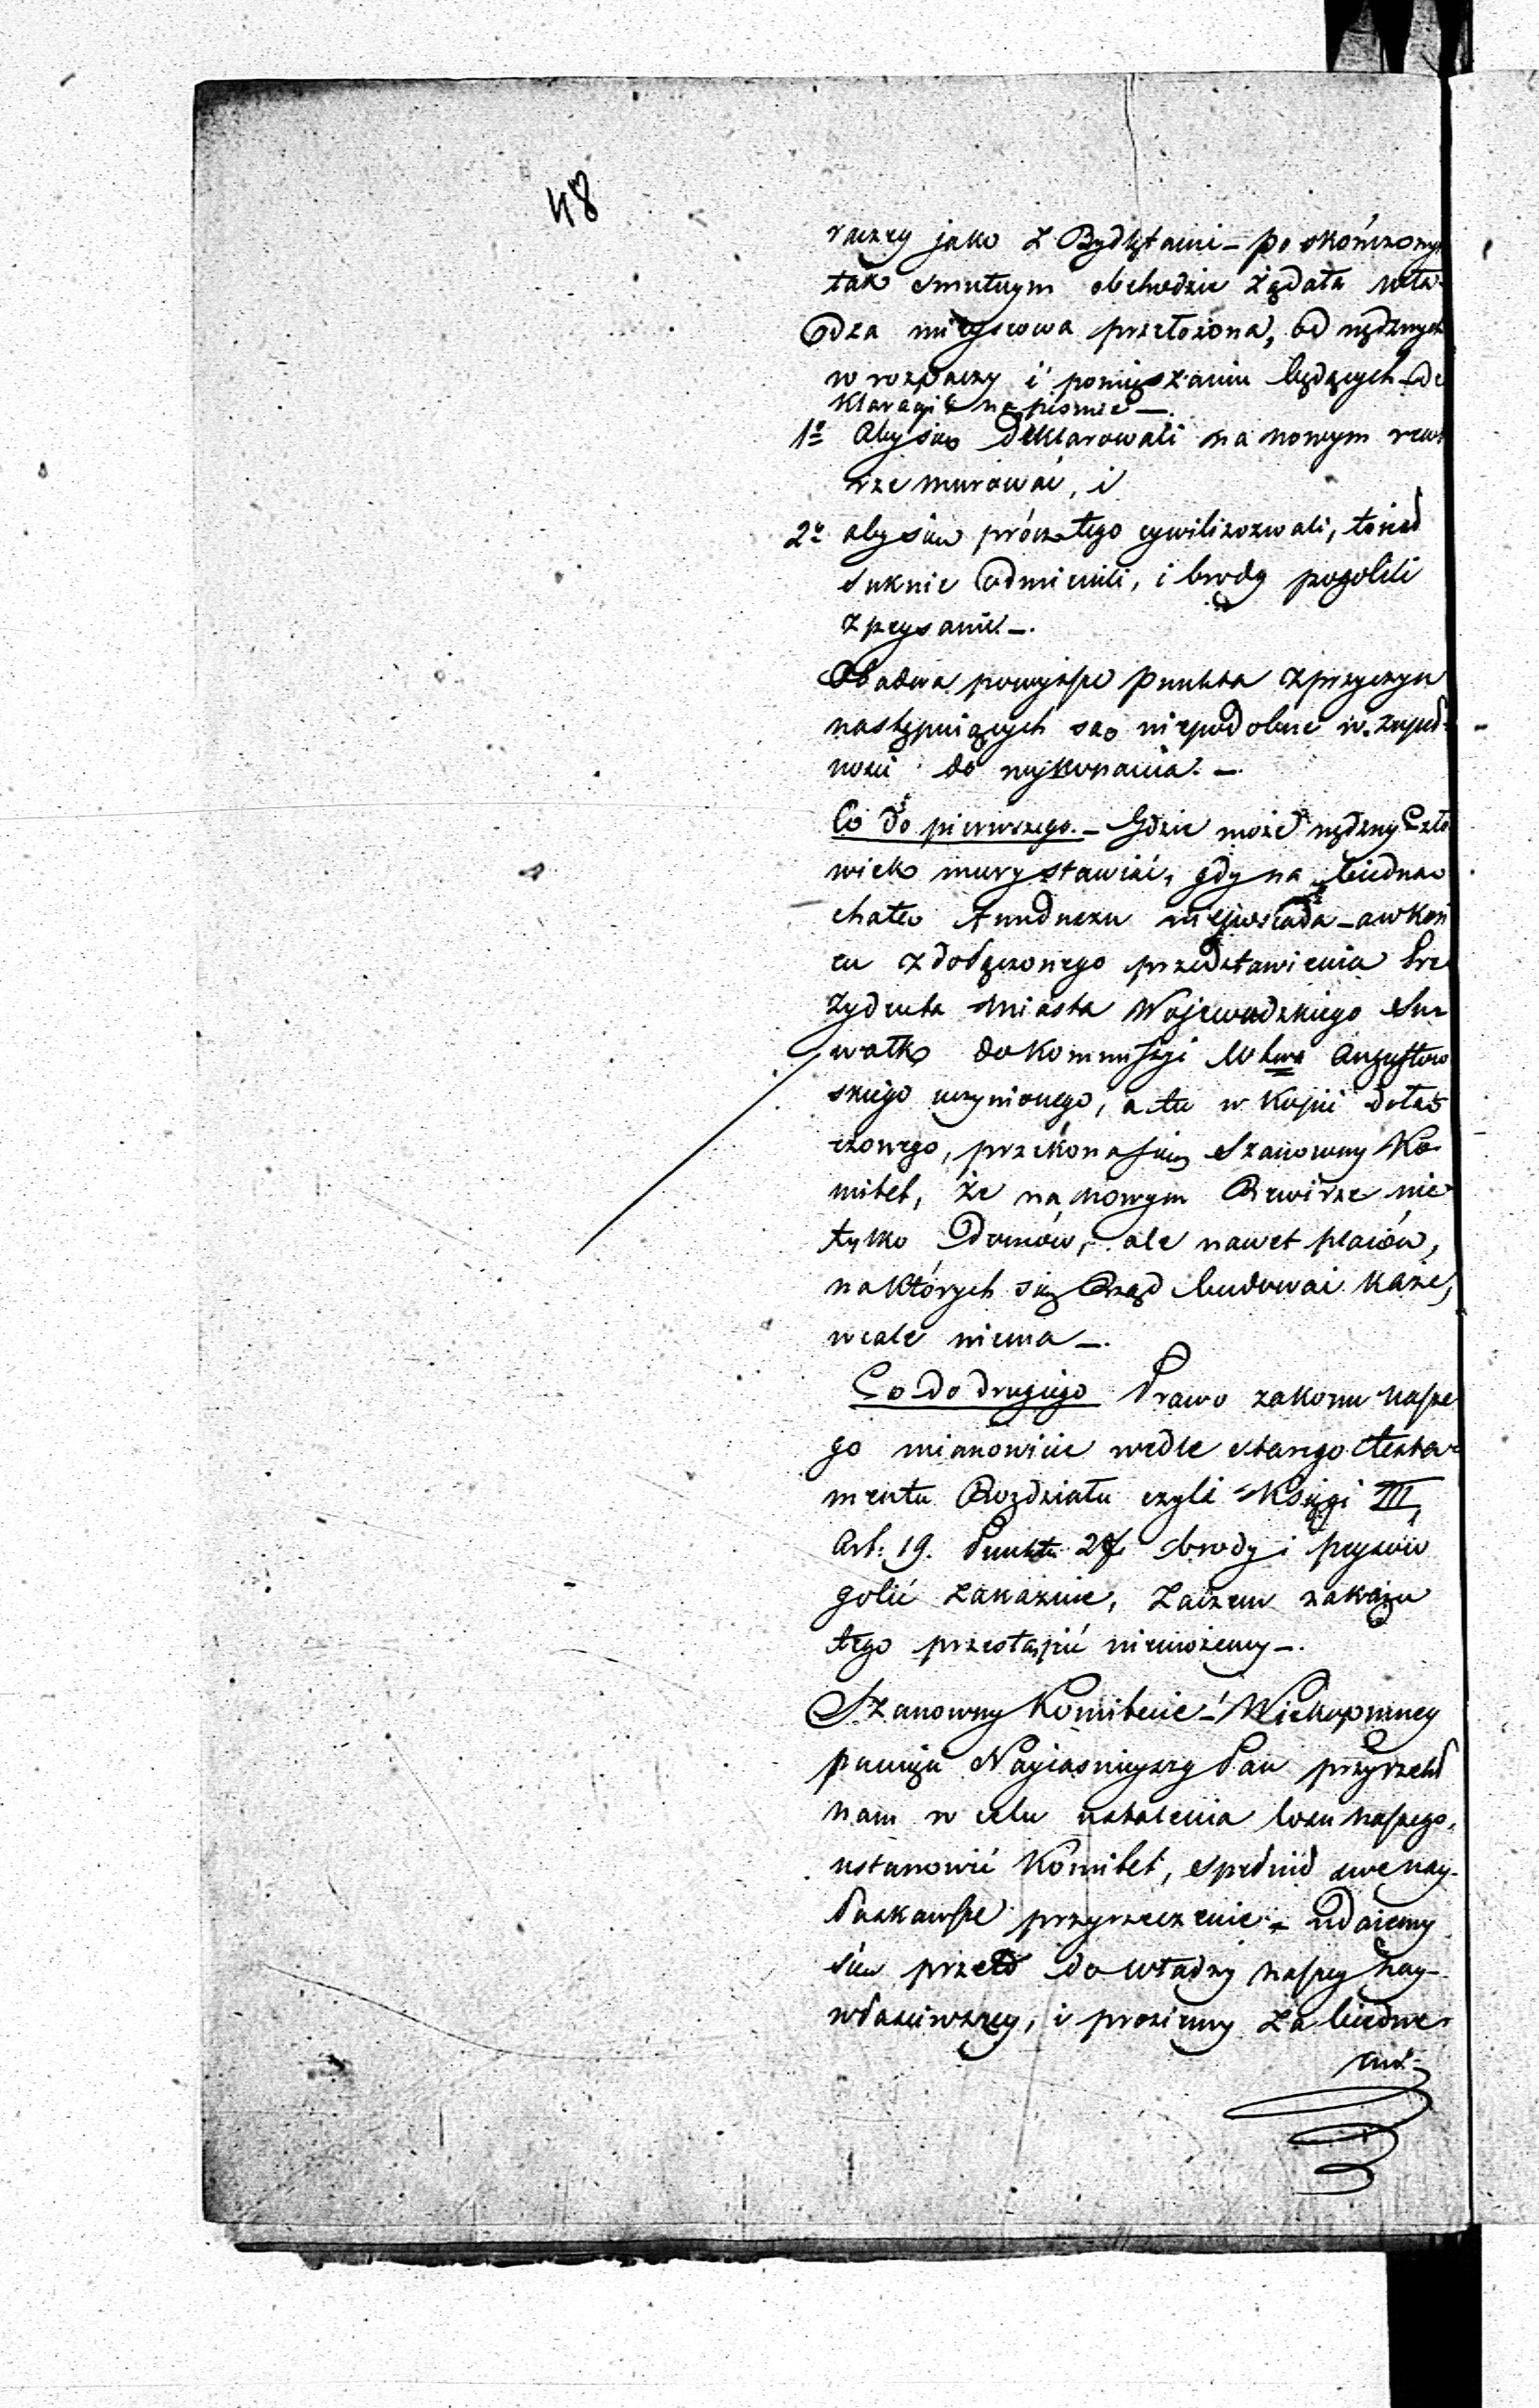 48
raczey jako z Bydlętami – po skończony
tak smutnym obchodzie żądała wła-
dza mieyscowa przełożona, od nędznych
w rozpaczy i pomięszaniu będących de
klaracji na pismie –.
1º Aby się deklarowali na nowym rewi
rze murować, i
2º aby się prócz tego cywilizowali, to jest
suknie odmienili, i brody pogolili
z peysami –.
Obadwa powyższe punkta z przyczyn
następuiących są niepodobne w zupeł-
ności do wykonania. –
Co do pierwszego. – Gdzie może nędzny Czło
wiek mury stawiać, gdy na biedną
chatę funduszu nieposiada – a w koń
cu z dołączonego przedstawienia Pre
zydenta Miasta Wojewodzkiego Su
wałk do Kommissyi Wtwa Augustow
skiego uczynionego, a tu w Kopii dołą
czonego, przekona się Szanowny Ko-
mitet, że na nowym Rewirze nie
tylko Domów, ale nawet placów,
na których się Rząd budować każe,
wcale niema –.
Co do drugiego Prawo zakonu nasze
go mianowicie wedle starego testa-
mentu Rozdziału czyli Księgi III,
Art: 19. Punktu 27 brody i peysów
golić zakazuie, zaczem zakazu
tego przestąpić niemożemy –.
Szanowny Komitecie! Wiekopomney
pamięci Nayiasnieyszy Pan przyrzekł
nam w celu ustalenia losu naszego,
ustanowić Komitet, spełnił swe nay-
łaskawsze przyrzeczenie – udaiemy
się przeto do władzy naszey nay-
właściwszey, i prosiemy za biedne-
mi